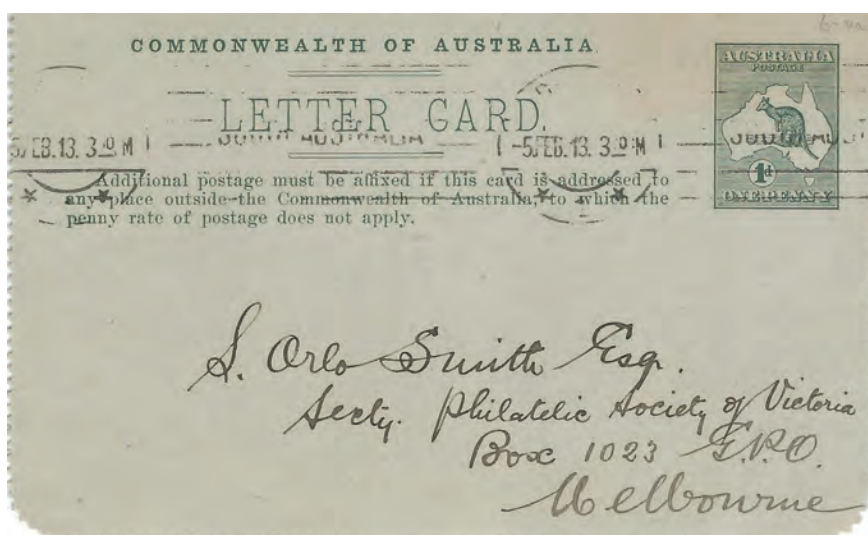 COMMONWEALTH OF AUSTRALIA.
LETTER CARD.
AUSTRALIA
POSTAGE
5. FEB.13. 3 PM
SOUTH AUSTRALIA
-5. FEB.13. 3 PM
1d
ONE PENNY
Additional postage must be affixed if this card is addressed to
any place outside the Commonwealth of Australia, to which the
penny rate of postage does not apply.
S. Orlo Smith Esqr.
Secty. Philatelic Society of Victoria
Box 1023 G.P.O.
Melbourne